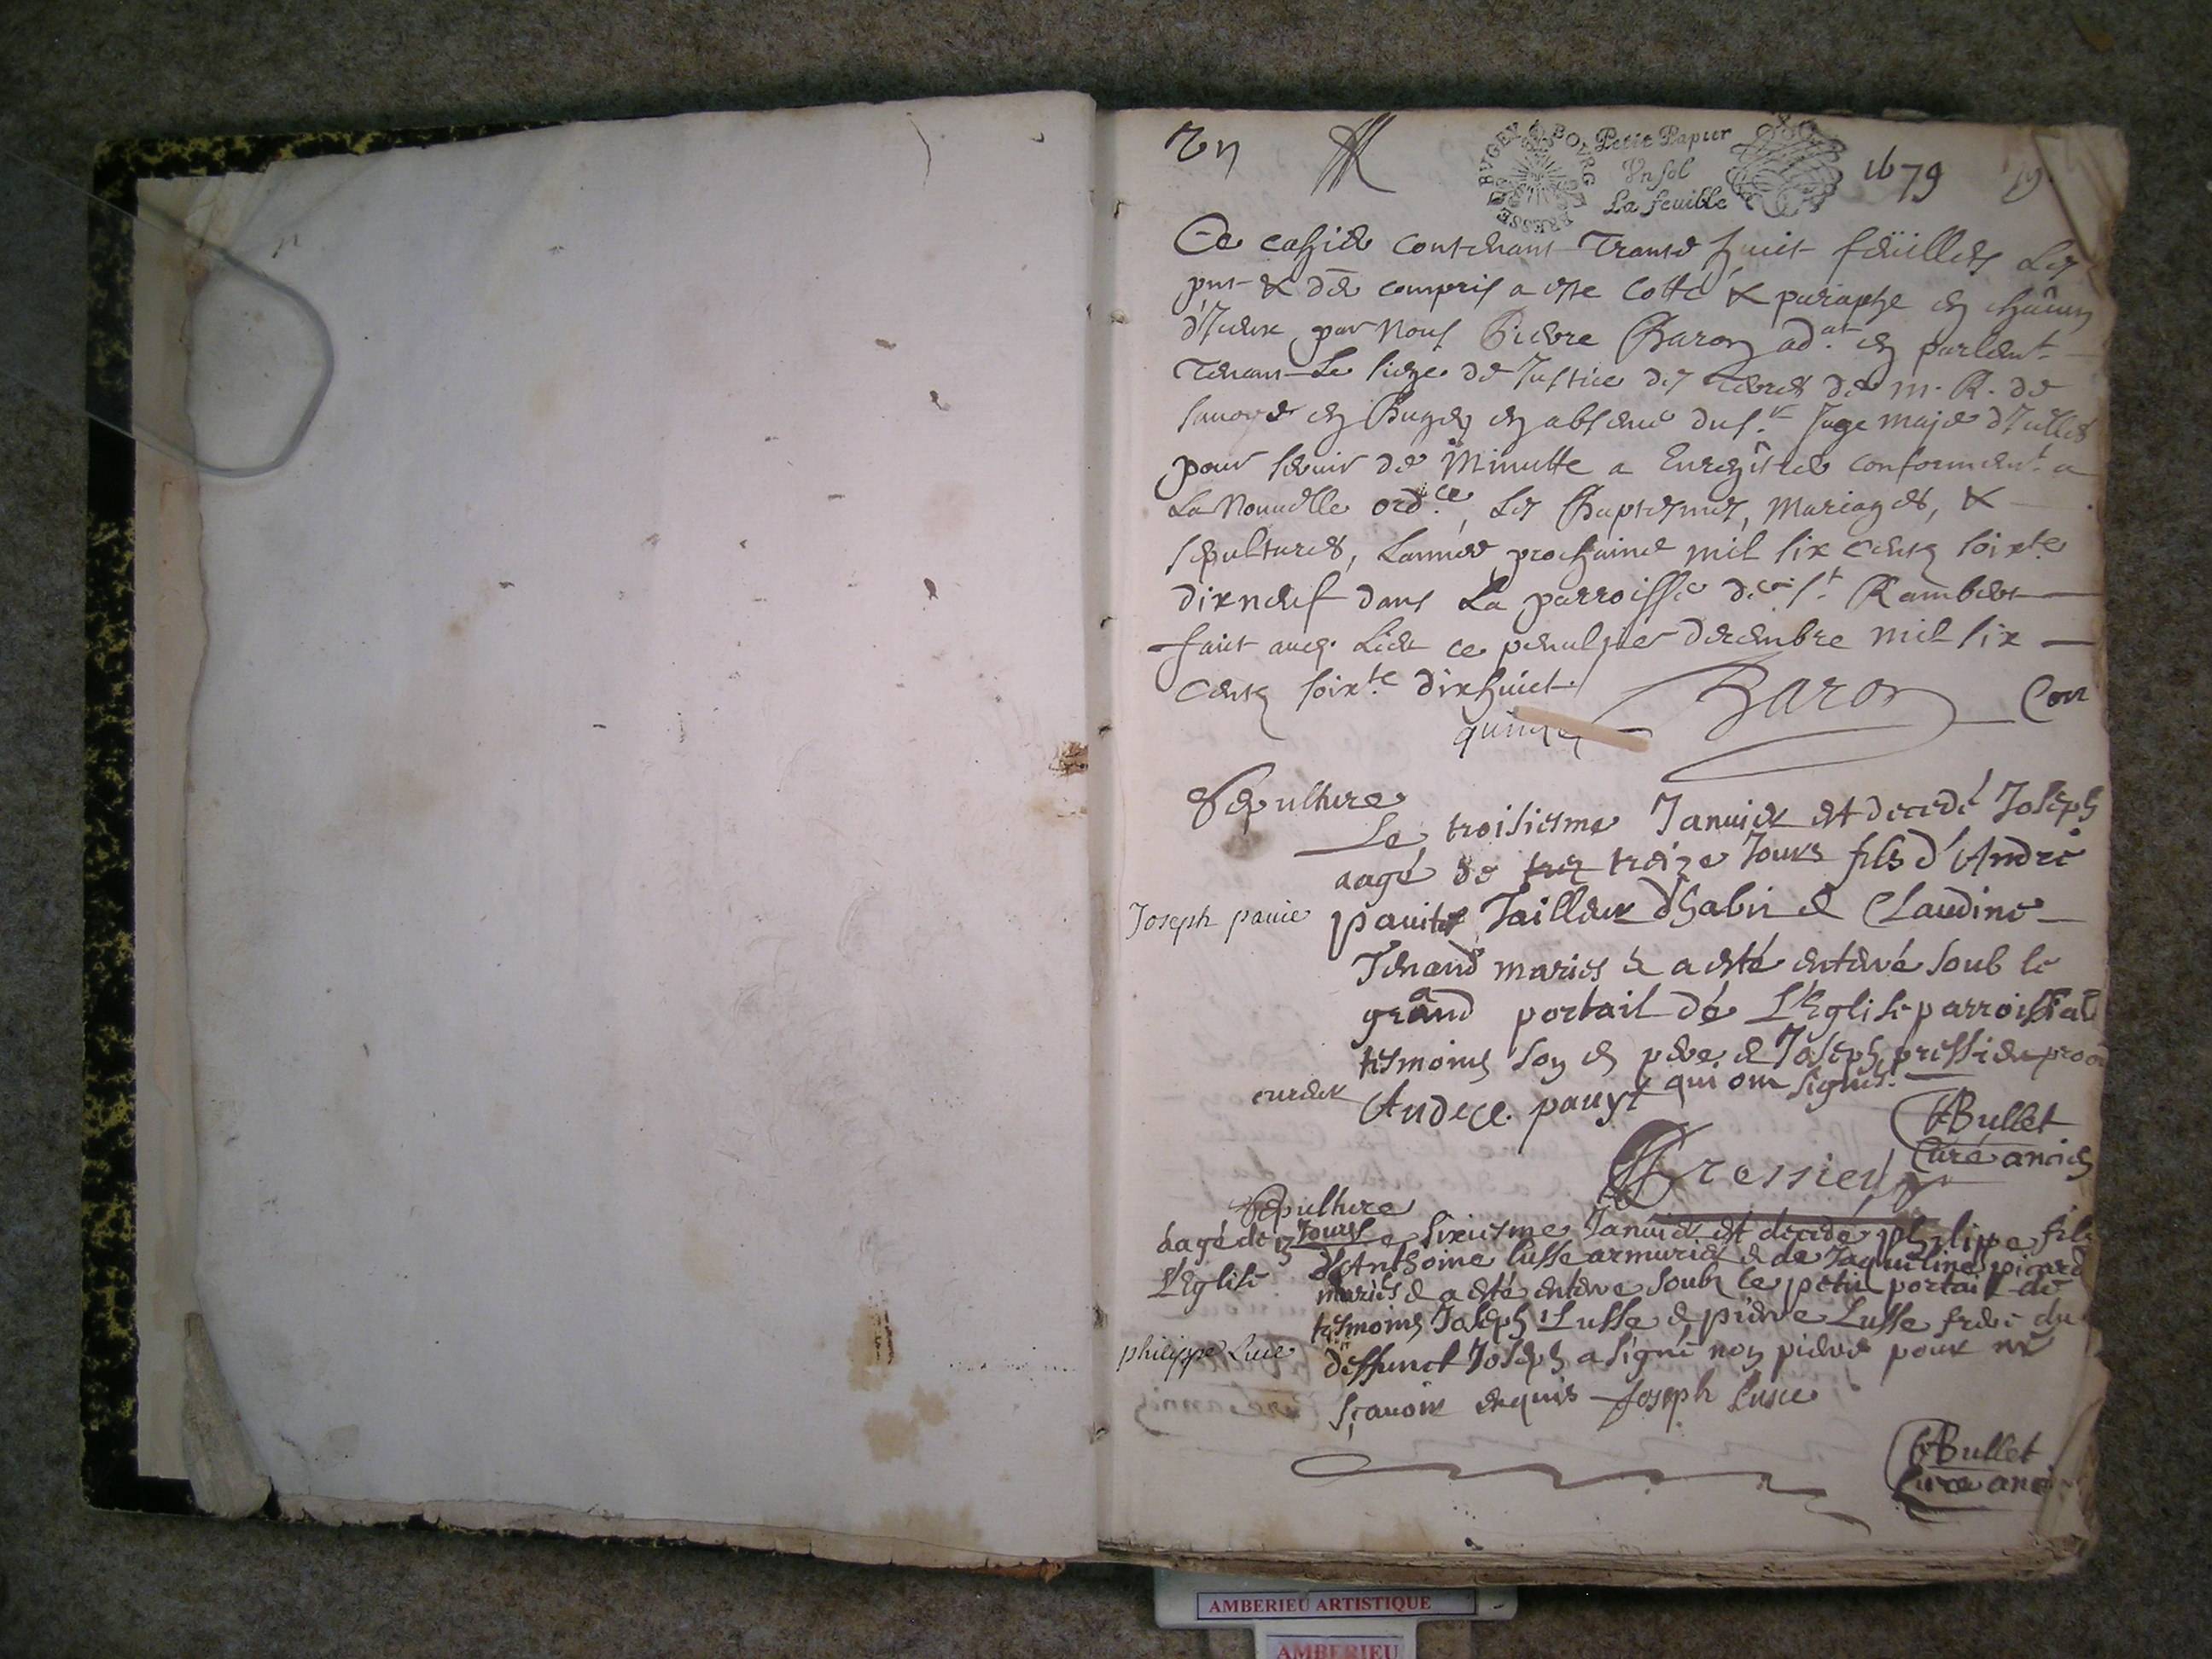 Un
BVGEY BOVRG BRESSE
Petit Papier
Un sol
La feuille
1679
Ce cahier contenant Trante huict feüillets Les
pnt & der compris a este cotté & paraphe en chacun
d'Iceux par Nous Pierre Baron ad.at en parlemt
Tenant Le siege de Justice des Terres de M. R. de
Savoye en Bugey en absence du s.r Juge maje d'Icelles
pour servir de Minutte a Enregistrer conformemt a
La Nouvelle ord.ce, Les Baptesmes, Mariages, &
sepultures, L'année prochaine mil six Cents soixte
dixneuf dans La parroisse de St Rambert
faict aud. Lieu ce penultie decembre mil six
Cents soixte dixhuict
Baron
Sepulture
Le troisiesme Januier est decedé Joseph
aagé de trez treize Jours fils d'André
Joseph pauie
pauite Tailleur d'habit & Claudine
Tenand mariés & a esté enterré soub le
grand portail dé L'Eglise parroissial
tesmoins son pere & Joseph pressieu
qui ont signés.
Andre pauyt
ABullet
Curé ancien
Pressieu
Sepulture
aagé de 13 Jours
Le sixiesme Januier est decedé philippe fils
d'Anthoine Lusse armurier & de Jaqueline picard
L'Eglise
mariés & a esté enterre soubz le petit portail de
tesmoins Joseph Lusse & pierre Lusse frere du
philippe Luce
deffunct Joseph a signé non pierre pour ne
sçauoir enquis Joseph Lusse
ABullet
Cure anc
AMBERIEU ARTISTIQUE
AMBERIEU